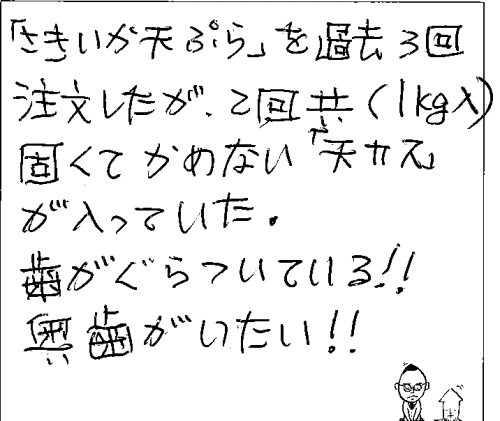 「さきいか天ぷら」を過去3回
注文したが、2回共(1kg入)
固くてかめない「天カス」
が入っていた。
歯がぐらついている!!
奥歯がいたい!!